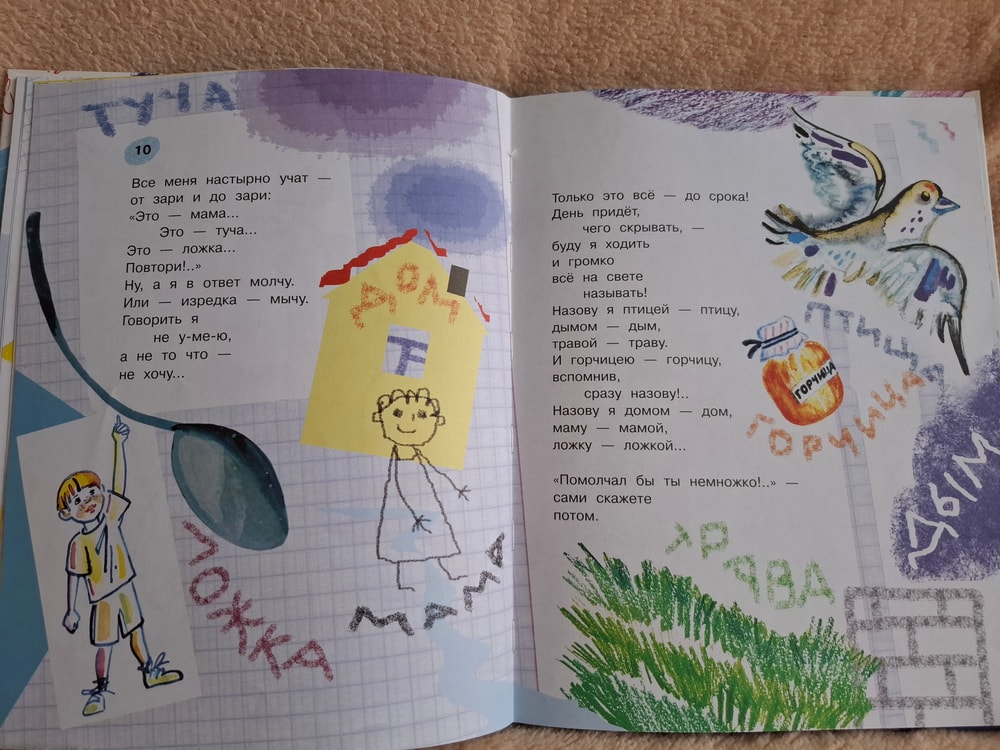 ТУЧА
10
Все меня настырно учат —
от зари и до зари:
«Это — мама...
Это — туча...
Это — ложка...
Повтори!..»
Ну, а я в ответ молчу.
Или — изредка — мычу.
Говорить я
не у-ме-ю,
а не то что —
не хочу...
ДОМ
ЛОЖКА
МАМА
Только это всё — до срока!
День придёт,
чего скрывать, —
буду я ходить
и громко
всё на свете
называть!
Назову я птицей — птицу,
дымом — дым,
травой — траву.
И горчицею — горчицу,
вспомнив,
сразу назову!..
Назову я домом — дом,
маму — мамой,
ложку — ложкой...
«Помолчал бы ты немножко!..» —
сами скажете
потом.
ПТИЦА
ГОРЧИЦА
ГОРЧИЦА
ДЫМ
ТРАВА